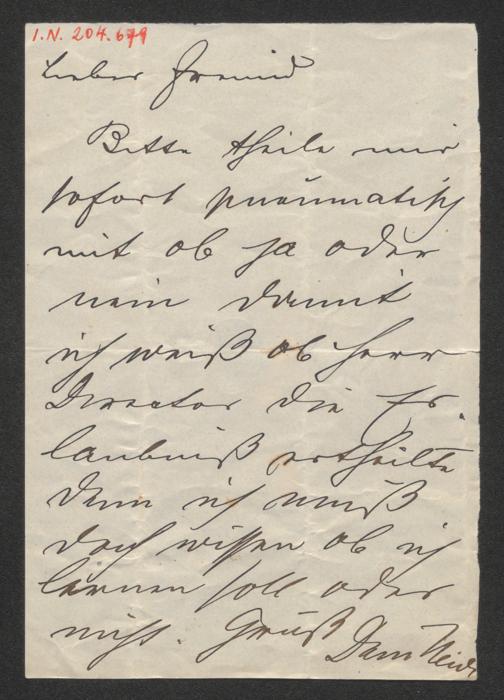 I.N. 204.679
Lieber Freund
Bitte theile mir
sofort pneumatisch
mit ob ja oder
nein damit
ich weiß ob Herr
Director die Er-
laubniß ertheilte
denn ich muß
doch wissen ob ich
lernen soll oder
nicht. Gruß Dein